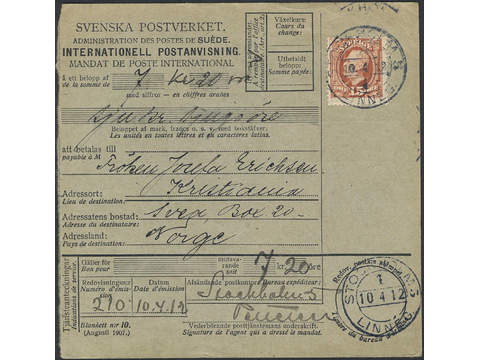 SVENSKA POSTVERKET.
ADMINISTRATION DES POSTES DE SUÈDE.
INTERNATIONELL POSTANVISNING.
MANDAT DE POSTE INTERNATIONAL
å ett belopp af
de la somme de
7 Kr 20 öre
med siffror – en chiffres arabes
sju kr. tjugo öre
Beloppet af mark, francs o. s. v. med bokstäfver.
Les unités en toutes lettres et en caractères latins.
att betalas till
payable à M
Fröken Josefa Erichsen
Adressort:
Lieu de destination:
Kristiania
Adressatens bostad:
Adresse du destinataire:
Svea Box 20
Adressland:
Pays de destination:
Norge
Växelkurs:
Cours du change:
Utbetaldt belopp:
Somme payée:
15
STOCKHOLM 5
10 4 12
LINNÉG.
Tjänsteanteckningar
Indications de service.
Gäller för
Bon pour
7 Kr 20 öre
Redovisningsnr
Numéro d'émission
210
Datum
Date d'émission
10.4.12
Afsändande postkontor
Bureau expéditeur:
Stockholm 5
Blankett nr 10.
(Augusti 1907.)
Vederbörande posttjänstemans underskrift.
Signature de l'agent qui a dressé le mandat.
STOCKHOLM 5
1
10 4 12
LINNÉG.